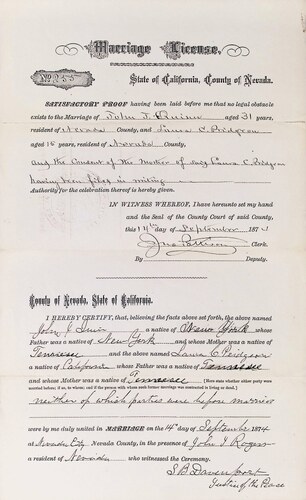 Marriage License.
No. 255
State of California, County of Nevada.
SATISFACTORY PROOF having been laid before me that no legal obstacle
exists to the Marriage of John J. Quinn aged 31 years,
resident of Nevada County, and Laura C. Pridgeon
aged 15 years, resident of Nevada County
and the Consent of the Mother of said Laura C. Pridgeon
having been filed in writing
Authority for the celebration thereof is hereby given.
IN WITNESS WHEREOF, I have hereunto set my hand
and the Seal of the County Court of said County,
this 14th day of September 1874
Clerk.
By Deputy.
County of Nevada, State of California.
I HEREBY CERTIFY, that, believing the facts above set forth, the above named
John J. Quinn a native of New York whose
Father was a native of New York and whose Mother was a native of
Tennessee and the above named Laura C. Pridgeon
a native of California whose Father was a native of Tennessee
and whose Mother was a native of Tennessee (Here state whether either party were
married before; if so, to whom; and if the person with whom such former marriage was contracted is living or dead.)
neither of which parties were before married
were by me duly united in MARRIAGE on the 14th day of September 1874
at Nevada City, Nevada County, in the presence of John T. Rogers
a resident of Nevada who witnessed the Ceremony.
S. B. Davenport
Justice of the Peace